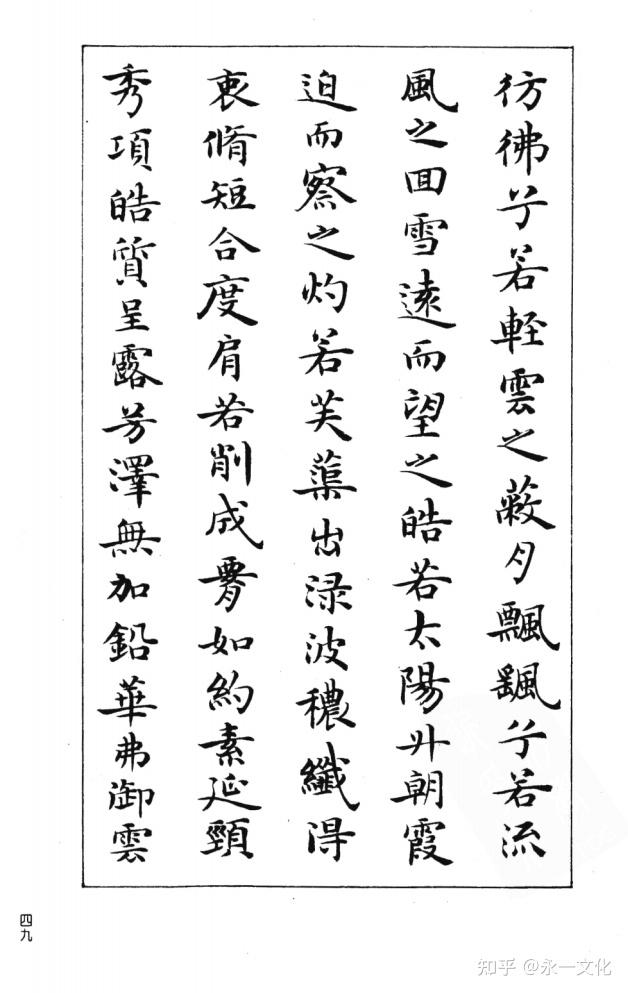 彷彿兮若輕雲之蔽月飄颻兮若流
風之回雪遠而望之皓若太陽升朝霞
迫而察之灼若芙蕖出渌波穠纖得
衷脩短合度肩若削成腰如約素延頸
秀項皓質呈露芳澤無加鉛華弗御雲
四九
知乎 @永一文化